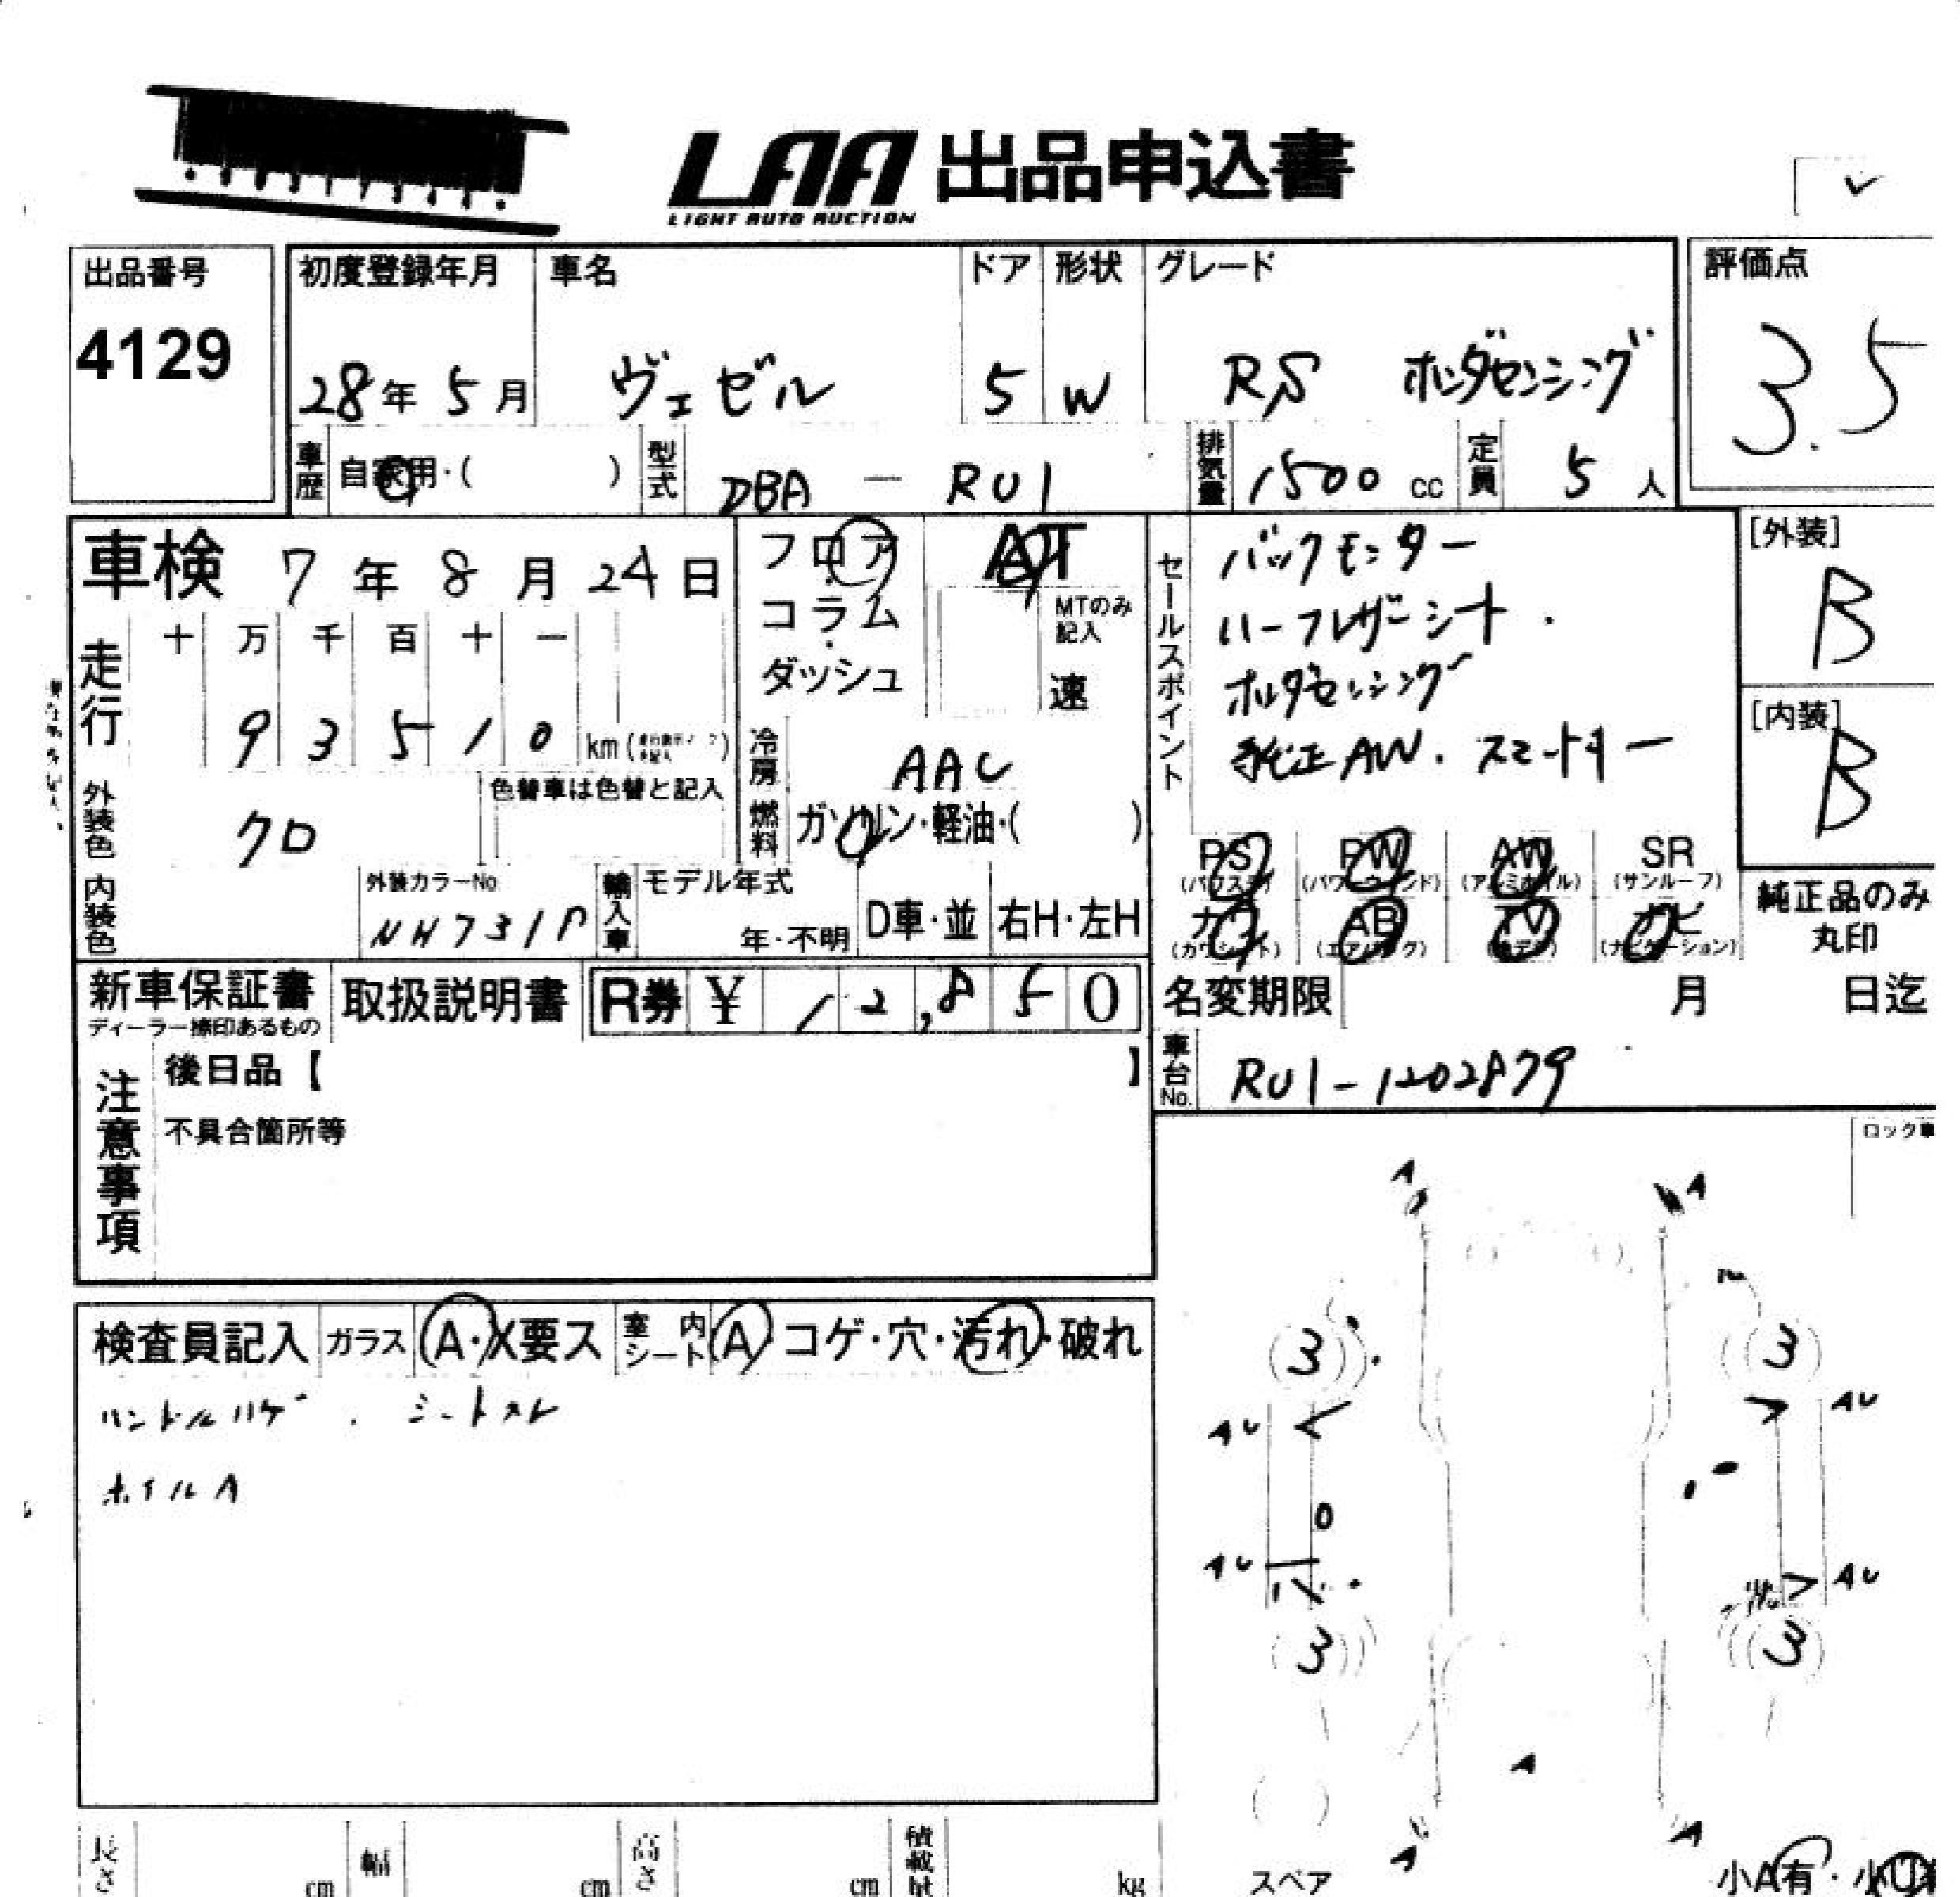 LAA 出品申込書
LIGHT AUTO AUCTION
出品番号 初度登録年月 車名 ドア 形状 グレード 評価点
4129 28年 5月 ヴェゼル 5 W RS ホンダセンシング 3.5
車歴 自家用・( ) 型式 DBA - RU1 排気量 1500 cc 定員 5 人
車検 7年 8月 24日 フロア・ AT
コラム・ MTのみ記入
ダッシュ 速
走行 十 万 千 百 十 一
9 3 5 1 0 km
冷房 AAC
セールスポイント バックモニター
ハーフレザーシート
ホンダセンシング
純正AW. スマートキー
[外装] B
[内装] B
外装色 クロ 色替車は色替と記入
燃料 ガソリン・軽油・( )
内装色 外装カラーNo NH731P 輸入車 モデル年式 年・不明 D車・並 右H・左H
PS (パワステ) PW (パワーウィンド) AW (アルミホイル) SR (サンルーフ)
カワ (カワシート) AB (エアバッグ) TV (テレビ) ナビ (ナビゲーション)
純正品のみ丸印
新車保証書 取扱説明書 R券 ¥ 12,850 名変期限 月 日迄
ディーラー捺印あるもの
注意事項 後日品【 】
車台No. RU1-1202879
不具合箇所等
ロック車
検査員記入 ガラス A・X要ス 室内シート A コゲ・穴・汚れ・破れ
ハンドルハゲ . シートスレ
ホイルA
A A
3 3
AU AU
AU AU
3 3
A
A A
長さ cm 幅 cm 高さ cm 積載量 kg スペア 小A有・小U